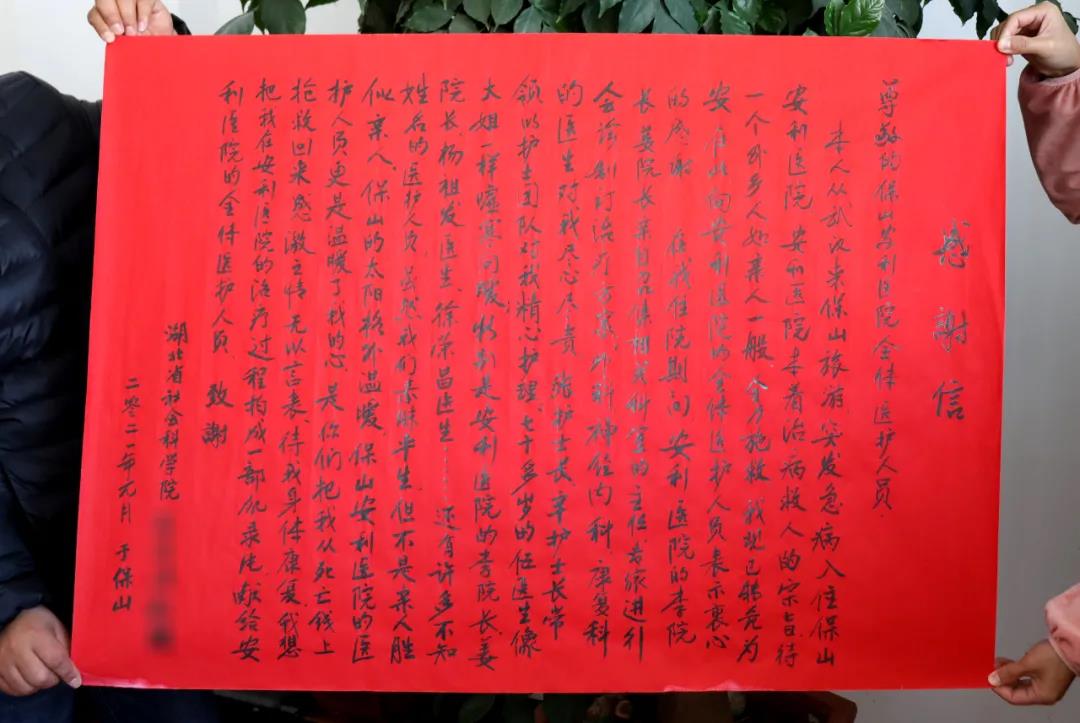 感謝信
尊敬的保山安利医院全体医护人员
本人从武汉来保山旅游突发急病入住保山
安利医院 安利医院本着治病救人的宗旨待
一个外乡人如亲人一般 全力施救 我现已转危为
安 在此向安利医院的全体医护人员表示衷心
的感谢 在我住院期间 安利医院的李院
长姜院长亲自召集相关科室的主任专家进行
会诊制订治疗方案 外科 神经内科 康复科
的医生对我尽心尽责 张护士长辛护士长带
领的护士团队对我精心护理 七十多岁的任医生像
大姐一样嘘寒问暖特别是安利医院的李院长姜
院长杨祖发医生 徐荣昌医生……还有许多不知
姓名的医护人员 虽然我们素昧平生 但不是亲人胜
似亲人 保山的太阳格外温暖 保山安利医院的医
护人员更是温暖了我的心 是你们把我从死亡线上
抢救回来感激之情无以言表 待我身体康复 我想
把我在安利医院的治疗过程构成一部 献给安
利医院的全体医护人员 致谢
湖北省社会科学院
二零二一年元月 于保山